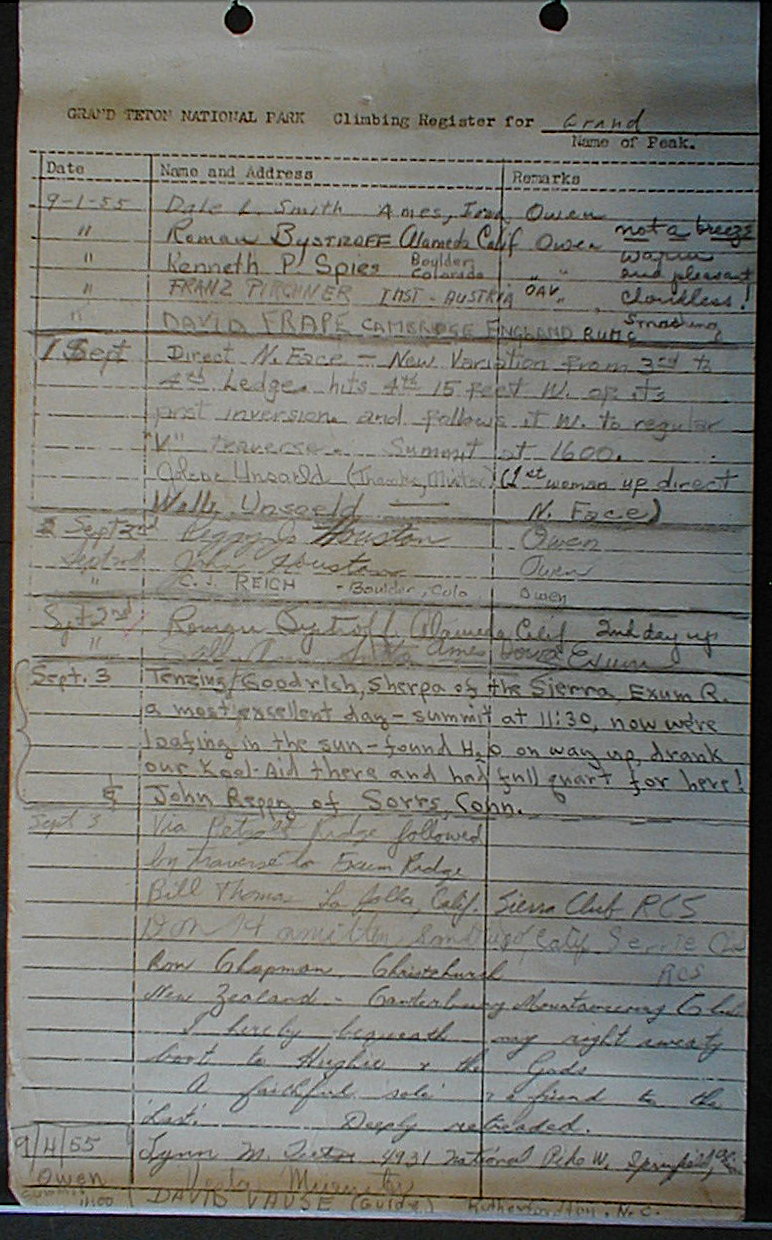 GRAND TETON NATIONAL PARK Climbing Register for Grand
Name of Peak.
Date Name and Address Remarks
9-1-55 Dale L. Smith Ames, Iowa Owen
" Roman BYSTROFF Alameda Calif Owen not a breeze
" Kenneth P. Spies Boulder Colorado " " warm and pleasant
" FRANZ PIRCHNER INST-AUSTRIA OAV " , cloudless!
" DAVID FRAPE CAMBROSE ENGLAND RUMC Smashing
1 Sept Direct N. Face - New Variation from 3rd to
4th Ledge. hits 4th 15 feet W. of its
first inversion and follows it W. to regular
"V" traverse. Summit at 1600.
Unsoeld (1st woman up direct
Willi Unsoeld N. Face)
Sept 2nd Peggy Jo Houston Owen
Sept 2nd John Houston Owen
" C. J. REICH - Boulder, Colo Owen
Sept 2nd Roman Bystroff, Alameda, Calif 2nd day up
" Ames Iowa Exum
Sept. 3 Tenzing Goodrich, Sherpa of the Sierra, Exum R.
a most excellent day - summit at 11:30, now we're
loafing in the sun - found H2O on way up, drank
our Kool-Aid there and had full quart for here!
& John Reppy of Sorrs, Conn.
Sept 3 Via Petzolt Ridge followed
by traverse to Exum Ridge
Bill Thomas La Jolla, Calif. Sierra Club RCS
Calif
RCS
Ron Chapman, Christchurch
New Zealand - Canterbury Mountaineering Club
I hereby bequeath my right sweaty
boot to Hughie & the Gods
A faithful sole & a friend to the
last. Deeply retreaded.
9/4/55 Lynn M. 4931 National Pike W. Springfield,
Owen
Summit 11:00 DAVID VAUSE (Guide) Rutherfordton, N.C.